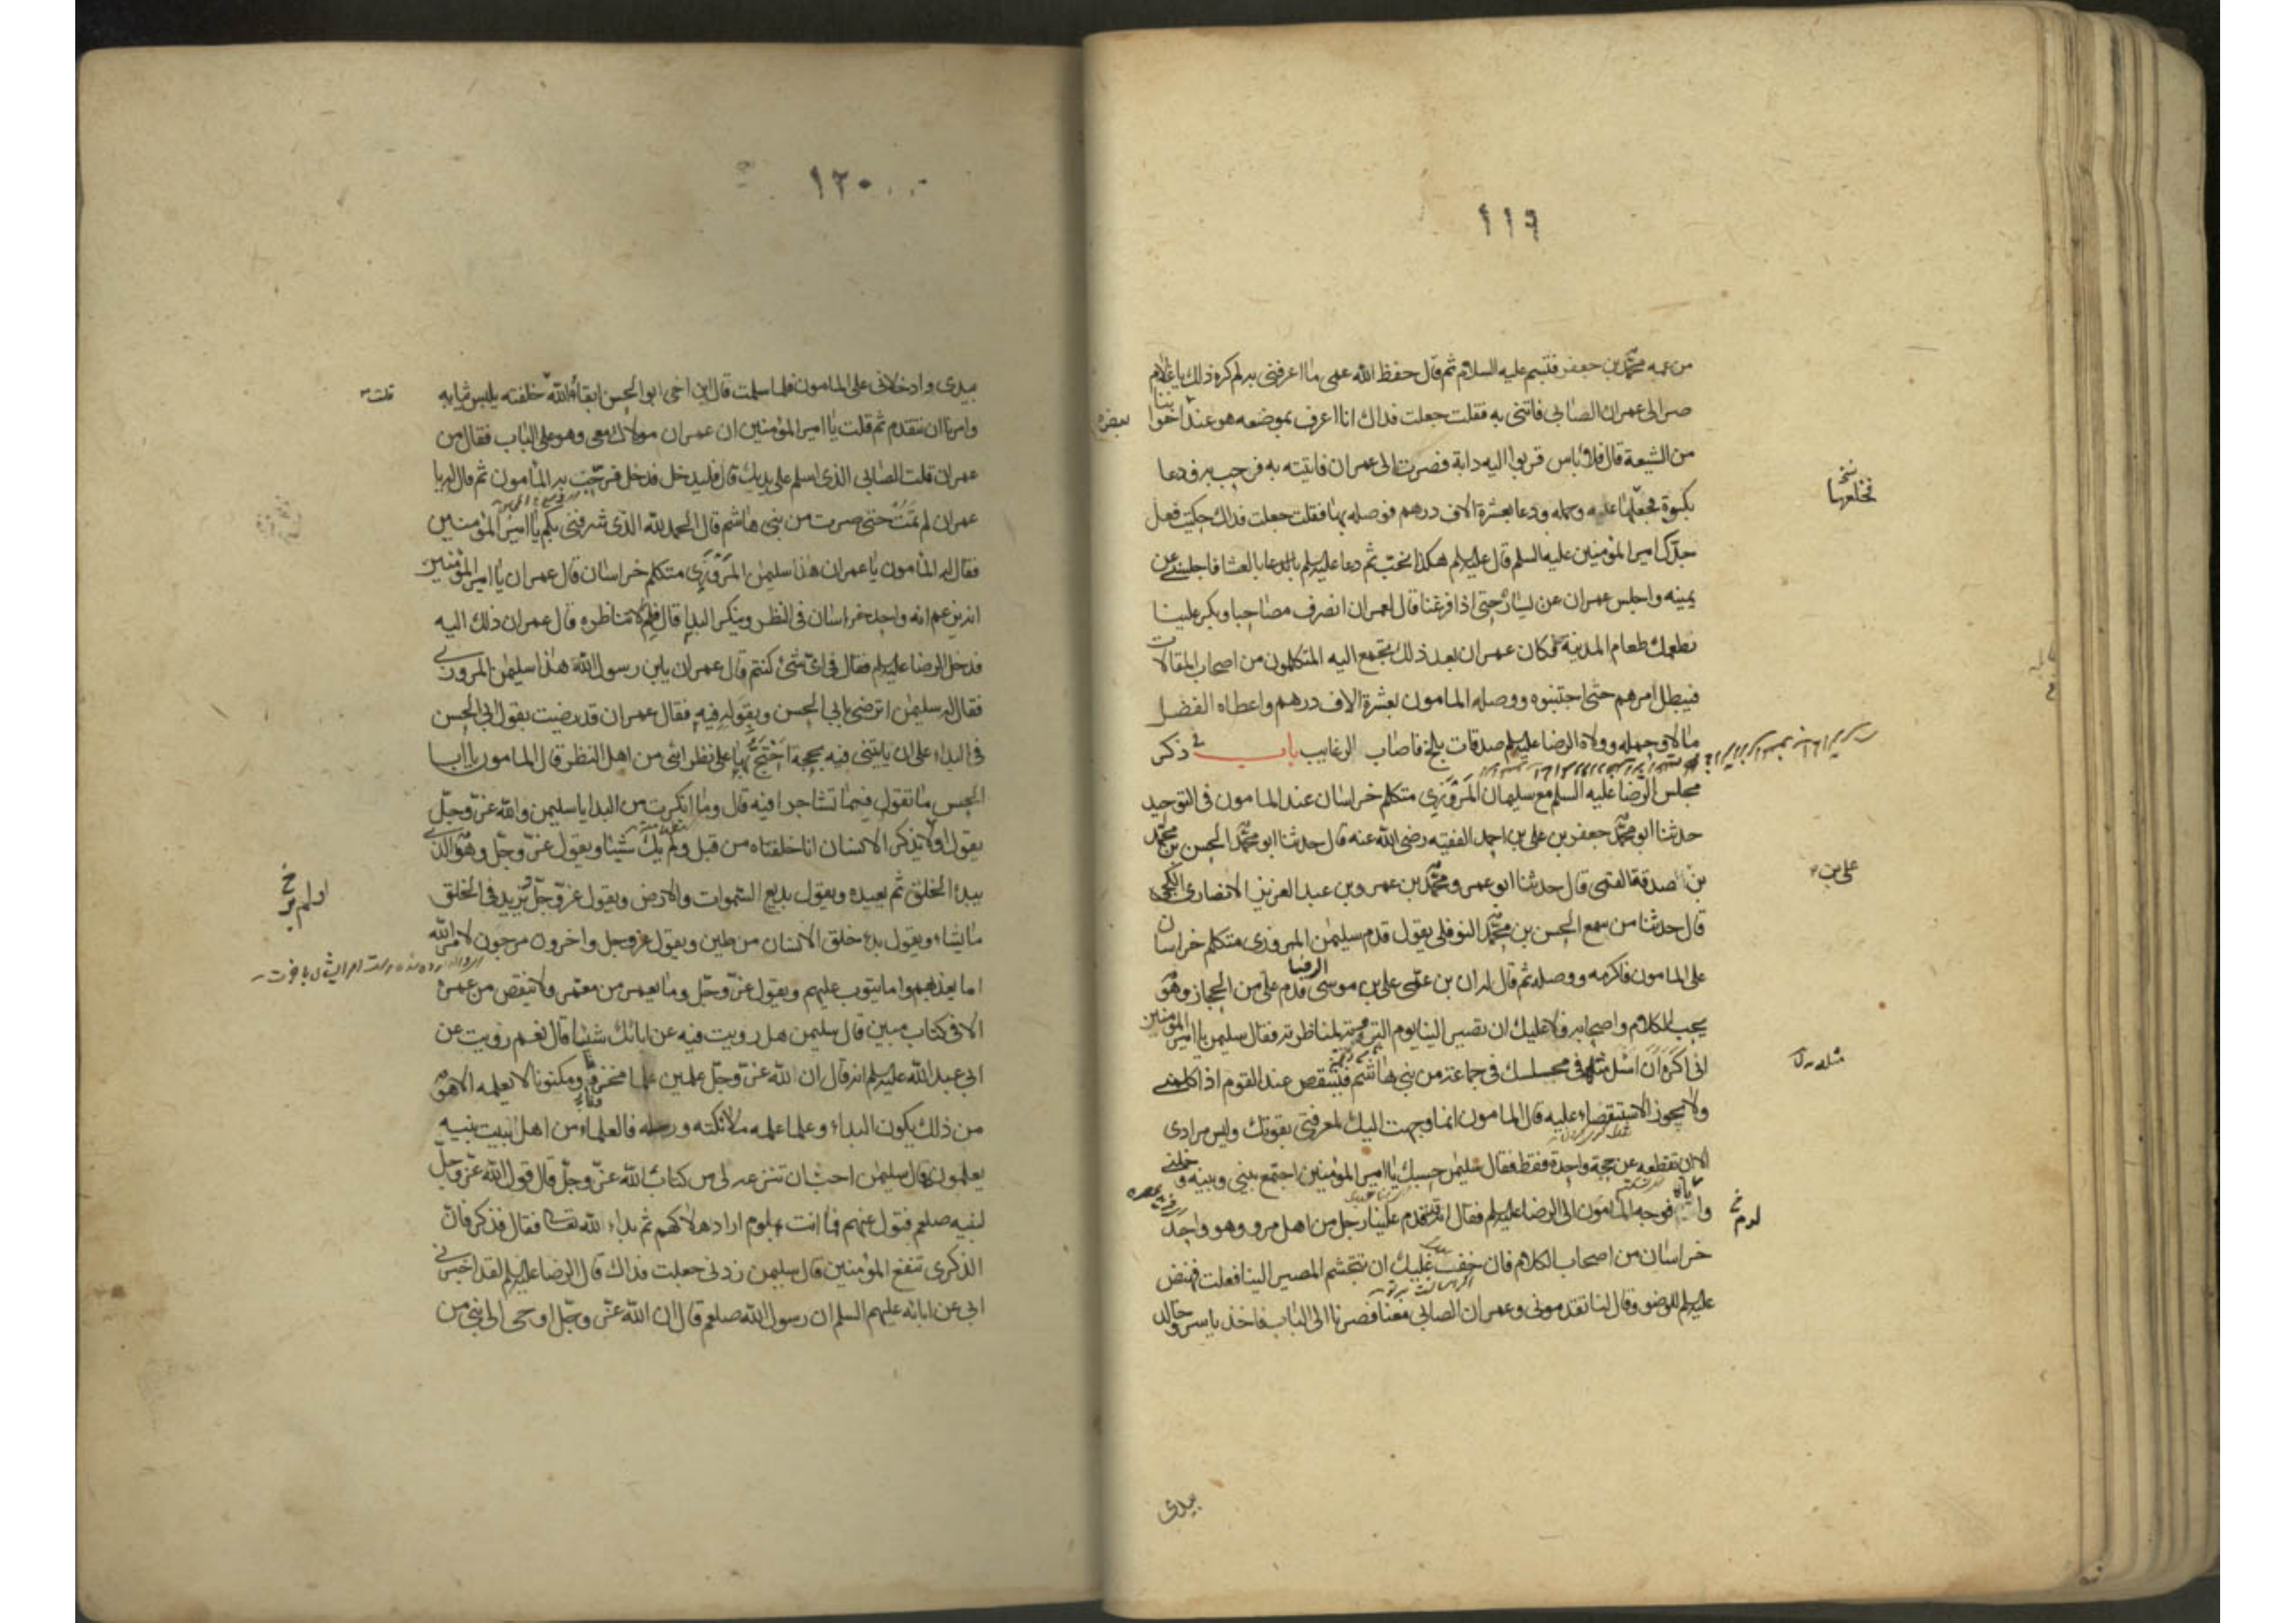 ١١٩
من عمه محمد بن جعفر فتبسم عليه السلام ثم قال حفظ الله عمى ما اعرفنى به لم كره ذلك يا غلام
صر الى عمران الصابى فاتنى به فقلت جعلت فداك انا اعرف موضعه هو عند اخواننا
من الشيعة قال فلا باس قربوا اليه دابة فصرت الى عمران فاتيته به فرحب به ودعا
بكسوة فجعلها عليه وحمله ودعا بعشرة الاف درهم فوصله بها فقلت جعلت فداك حكيت فعل
جدك امير المؤمنين عليه السلم قال عليه السلم هكذا نحب ثم دعا عليه السلم بالعشا فاجلسنى عن
يمينه واجلس عمران عن يساره حتى اذا فرغنا قال لعمران انصرف مصاحبا وبكر علينا
نطعمك طعام المدينة فكان عمران بعد ذلك يجتمع اليه المتكلمون من اصحاب المقالات
فيبطل امرهم حتى اجتنبوه ووصله المامون بعشرة الاف درهم واعطاه الفضل
مالا وحمله وولاه الرضا عليه السلم صدقات بلخ فاصاب الرغايب باب فى ذكر
مجلس الرضا عليه السلم مع سليمان المروزى متكلم خراسان عند المامون فى التوحيد
حدثنا ابو محمد جعفر بن على بن احمد الفقيه رضى الله عنه قال حدثنا ابو محمد الحسن بن محمد
بن صدقة القمى قال حدثنا ابو عمرو محمد بن عمرو بن عبد العزيز الانصارى الكجى
قال حدثنا من سمع الحسن بن محمد النوفلى يقول قدم سليمن المروزى متكلم خراسان
على المامون فاكرمه ووصله ثم قال له ان بن عمى على بن موسى الرضا قدم على من الحجاز وهو
يحب الكلام واصحابه ولا عليك ان تصير الينا يوم التروية لمناظرته فقال سليمن يا امير المؤمنين
انى اكره ان اسئل مثله فى مجلسك فى جماعة من بنى هاشم فينتقص عند القوم اذا كلمنى
ولا يجوز الاستقصاء عليه قال المامون انما وجهت اليك لمعرفتى بقوتك وليس مرادى
الا ان تقطعه عن حجة واحدة فقط فقال سليمن حسبك يا امير المؤمنين اجمع بينى وبينه وخلنى
واياه فوجه المامون الى الرضا عليه السلم فقال انه قدم علينا رجل من اهل مرو وهو واحد
خراسان من اصحاب الكلام فان خف عليك ان تتجشم المصير الينا فعلت فنهض
عليه السلم للوضو وقال لنا تقدمونى وعمران الصابى معنا فصرنا الى الباب فاخذ ياسر وخالد
بيدى
نخ
فخلعها
على بن
مثله
١٢٠
بيدى وادخلانى على المامون فلما سلمت قال اين اخى ابو الحسن ابقاه الله خلفته يلبس ثيابه
وامرنا ان نتقدم ثم قلت يا امير المؤمنين ان عمران مولاك معى وهو على الباب فقال من
عمران قلت الصابى الذى اسلم على يديك قال فليدخل فدخل فرحب به المامون ثم قال له يا
عمران لم تمت حتى صرت من بنى هاشم قال الحمد لله الذى شرفنى بكم يا امير المؤمنين
فقال له المامون يا عمران هذا سليمن المروزى متكلم خراسان قال عمران يا امير المؤمنين
انه يزعم انه واحد خراسان فى النظر وينكر البدا قال فلم لا تناظره قال عمران ذلك اليه
فدخل الرضا عليه السلم فقال فى اى شئ كنتم قال عمران يابن رسول الله هذا سليمن المروزى
فقال له سليمن اترضى بابى الحسن وبقوله فيه فقال عمران قد رضيت بقول ابى الحسن
فى البداء على ان ياتينى فيه بحجة احتج بها على نظرائى من اهل النظر قال المامون يا ابا
الحسن ما تقول فيما تشاجرا فيه قال وما انكرت من البدا يا سليمن والله عز وجل
يقول اولا يذكر الانسان انا خلقناه من قبل ولم يك شيئا ويقول عز وجل وهو الذى
يبدء الخلق ثم يعيده ويقول بديع السموات والارض ويقول عز وجل يزيد فى الخلق
ما يشاء ويقول بدء خلق الانسان من طين ويقول عز وجل واخرون مرجون لامر الله
اما يعذبهم واما يتوب عليهم ويقول عز وجل وما يعمر من معمر ولا ينقص من عمره
الا فى كتاب مبين قال سليمن هل رويت فيه عن ابائك شيئا قال نعم رويت عن
ابى عبد الله عليه السلم انه قال ان لله عز وجل علمين علما مخزونا ومكنونا لا يعلمه الا هو
من ذلك يكون البداء وعلما علمه ملائكته ورسله فالعلماء من اهل بيت نبيه
يعلمونه قال سليمن احب ان تنزعه لى من كتاب الله عز وجل قال قول الله عز وجل
لنبيه صلعم فتول عنهم فما انت بملوم اراد هلاكهم ثم بداء لله تعالى فقال فذكر فان
الذكرى تنفع المؤمنين قال سليمن زدنى جعلت فداك قال الرضا عليه السلم لقد اخبرنى
ابى عن ابائه عليهم السلم ان رسول الله صلعم قال ان الله عز وجل اوحى الى نبى من
قلت
اولم ير
خ